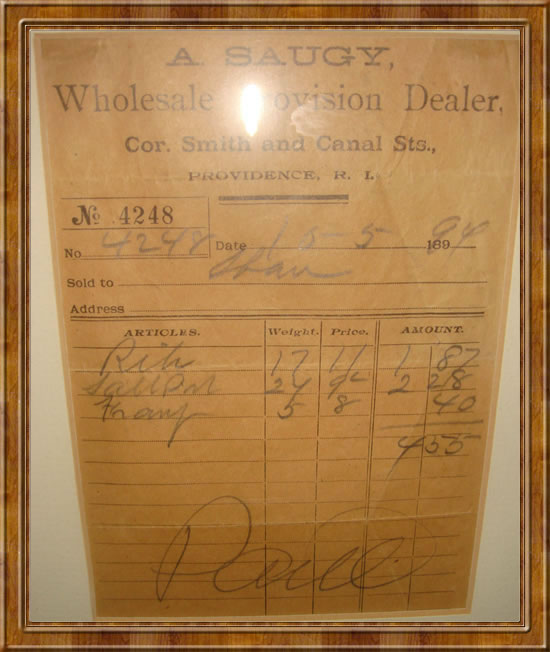 A. SAUGY,
Wholesale Provision Dealer,
Cor. Smith and Canal Sts.,
PROVIDENCE, R. I.
No. 4248
No 4248 Date 15-5 1894
Sold to Shaw
Address
ARTICLES. Weight. Price. AMOUNT.
Rib 17 11 1 87
24 9½ 2 28
5 8 40
4 55
Paid